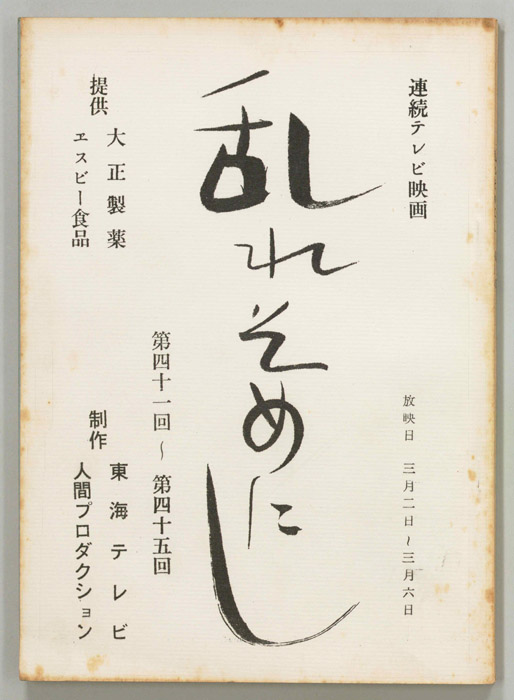 連続テレビ映画
放映日 三月二日～三月六日
乱れそめにし
第四十一回～第四十五回
提供 大正製薬
エスビー食品
制作 東海テレビ
人間プロダクション